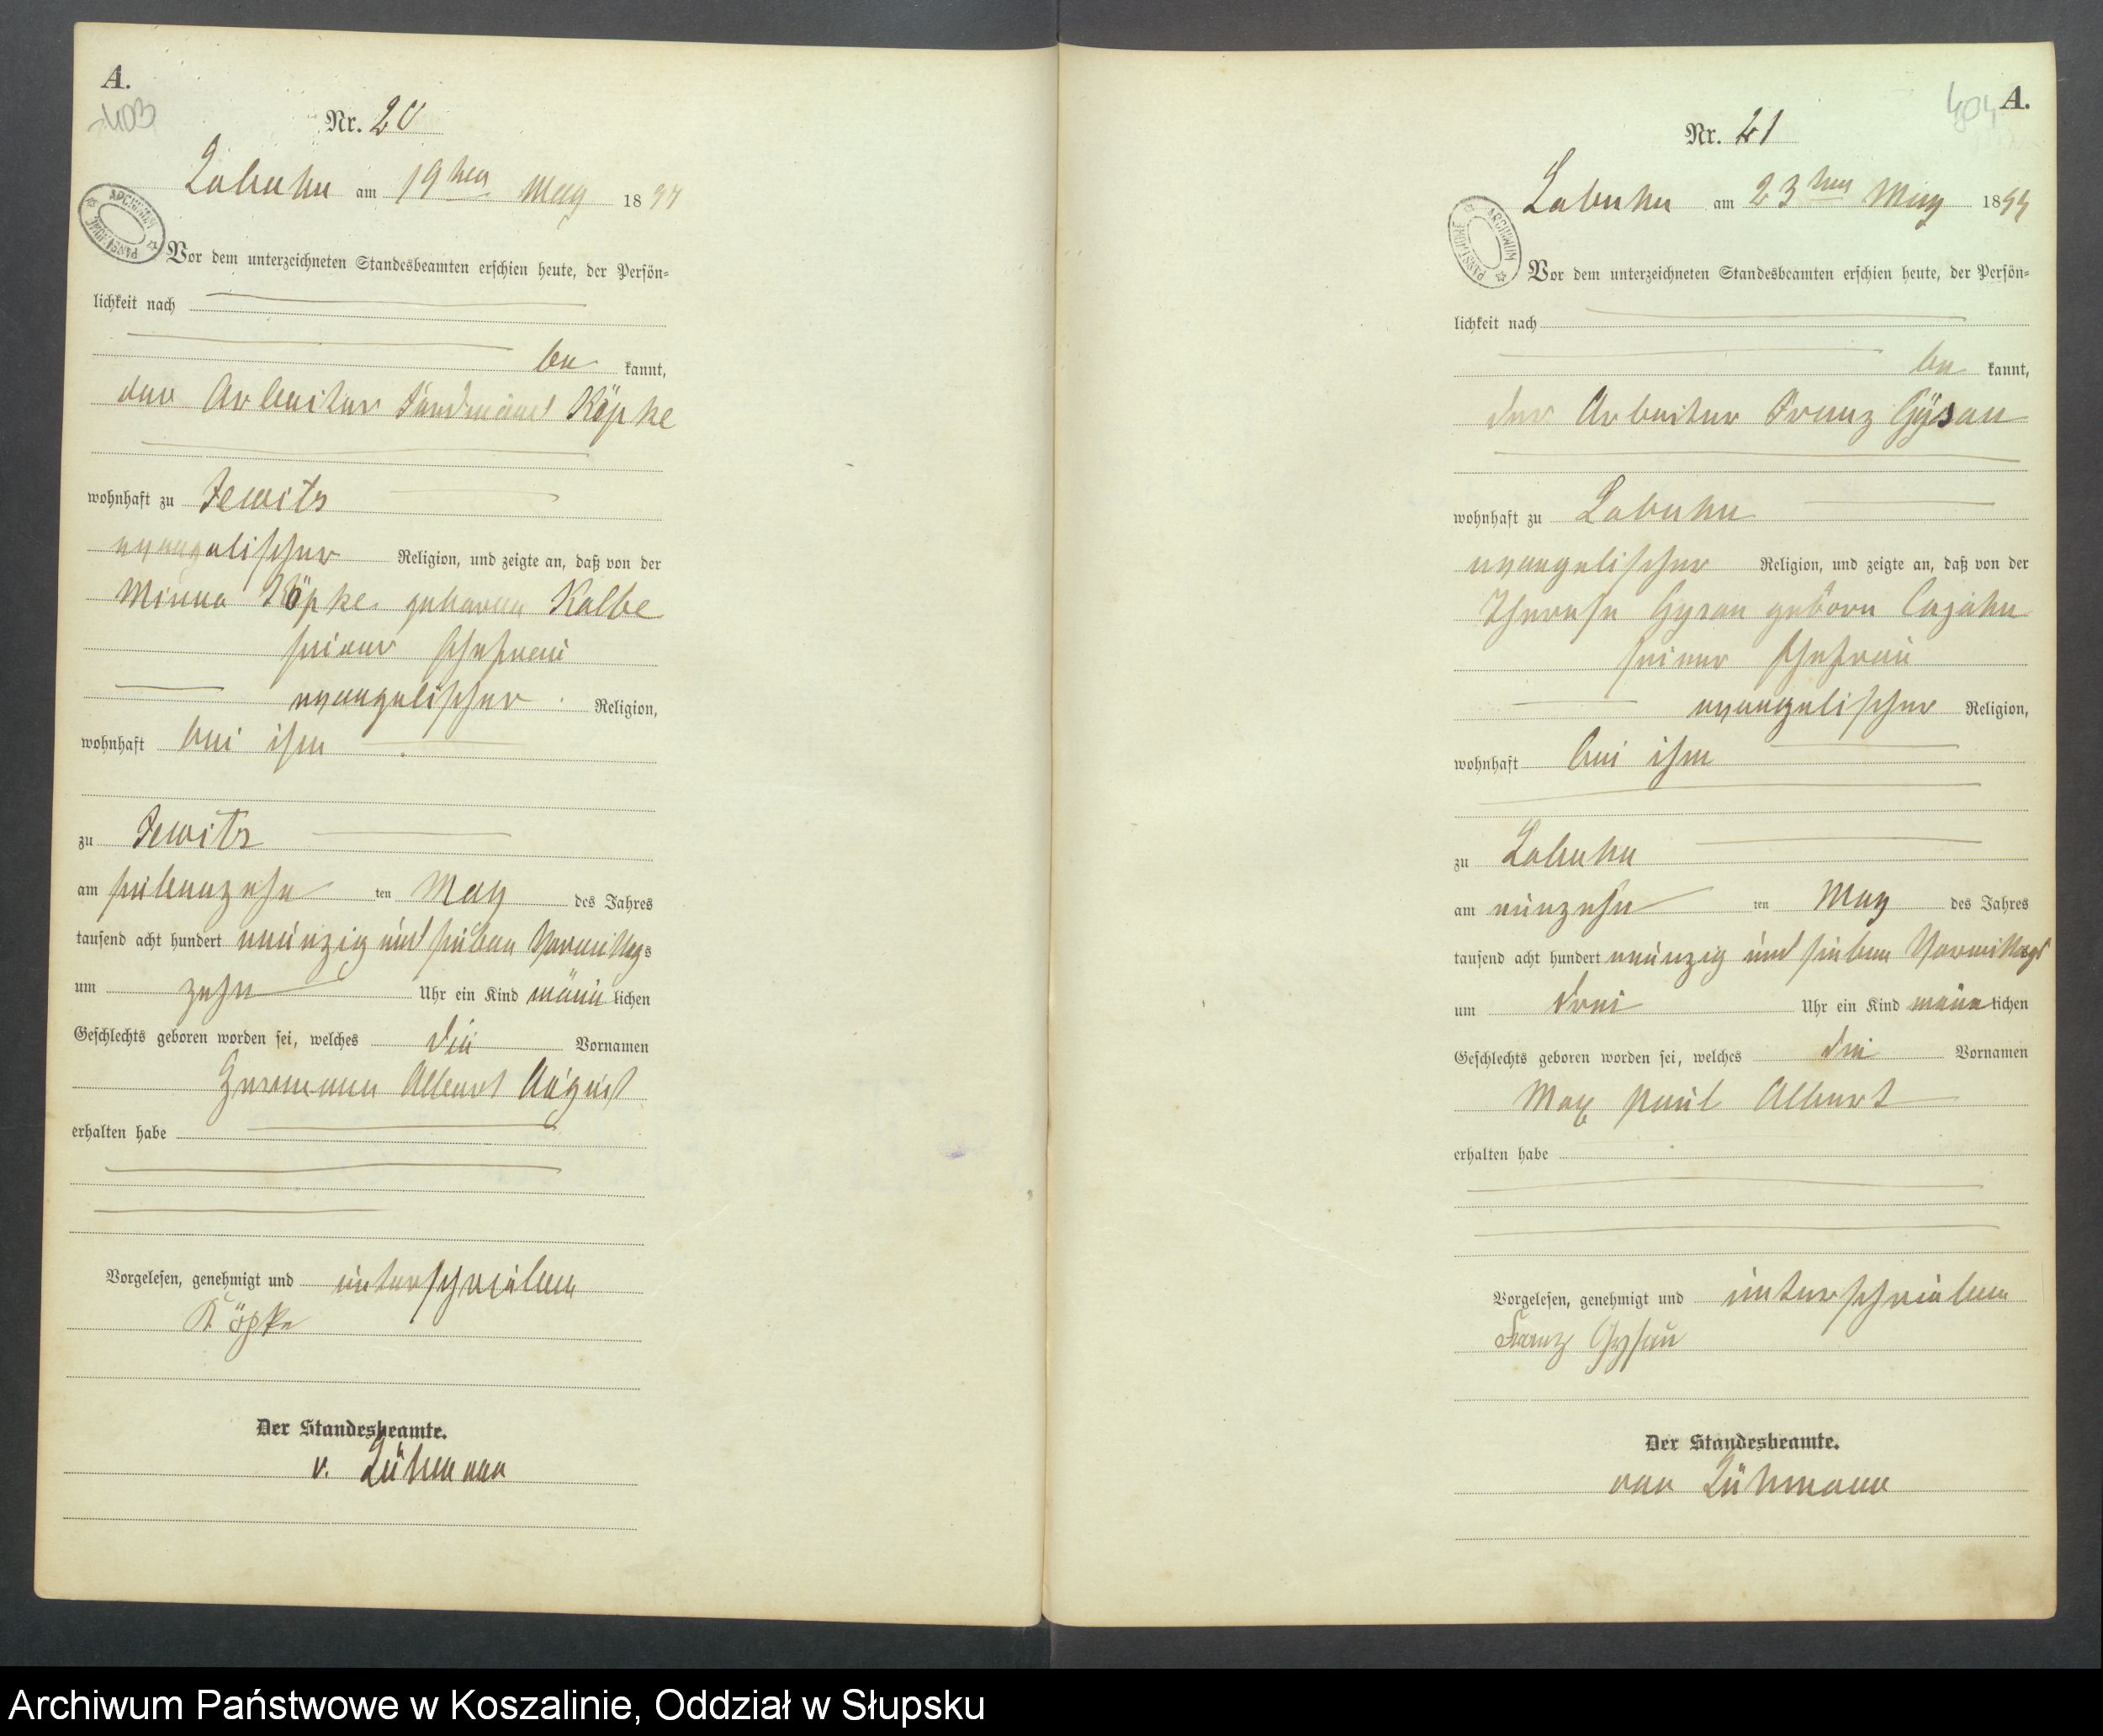 A.
403
Nr. 20
Labuhn am 19ten May 1897
ARCHIWUM PAŃSTWOWE
Vor dem unterzeichneten Standesbeamten erschien heute, der Persön=
lichkeit nach
be kannt,
der Arbeiter Ferdinand Köpke
wohnhaft zu Jewitz
evangelischer Religion, und zeigte an, daß von der
Minna Köpke geborene Kolbe
seiner Ehefrau
evangelischer Religion,
wohnhaft bei ihm
zu Jewitz
am siebenzehn ten May des Jahres
tausend acht hundert neunzig und sieben Vormittags
um zehn Uhr ein Kind männlichen
Geschlechts geboren worden sei, welches die Vornamen
Hermann Albert August
erhalten habe
Vorgelesen, genehmigt und unterschrieben
Köpke
Der Standesbeamte.
v. Lühmann
404
A.
Nr. 21
Labuhn am 23ten May 1897
ARCHIWUM PAŃSTWOWE
Vor dem unterzeichneten Standesbeamten erschien heute, der Persön=
lichkeit nach
be kannt,
der Arbeiter Franz Gysau
wohnhaft zu Labuhn
evangelischer Religion, und zeigte an, daß von der
Therese Gysau geborn
seiner Ehefrau
evangelischer Religion,
wohnhaft bei ihm
zu Labuhn
am neunzehn ten May des Jahres
tausend acht hundert neunzig und sieben Vormittags
um drei Uhr ein Kind männlichen
Geschlechts geboren worden sei, welches die Vornamen
Max Paul Albert
erhalten habe
Vorgelesen, genehmigt und unterschrieben
Franz Gysau
Der Standesbeamte.
von Lühmann
Archiwum Państwowe w Koszalinie, Oddział w Słupsku